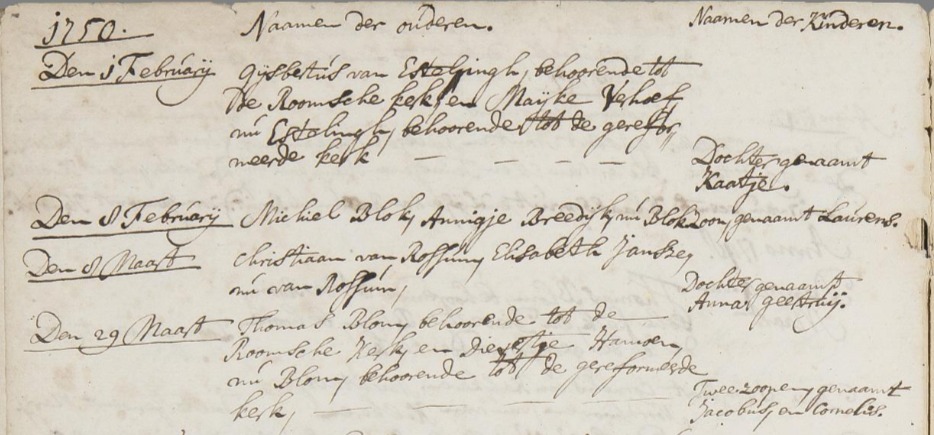 1750. Naamen der ouderen. Naamen der Kinderen.
Den 1 Februarij Gijsbertus van Estelingh, behoorende tot
De Roomsche kerk, en Maijke Verhoef
nu Estelingh, behoorende tot de gerefor,
meerde kerk — — — —
Dochter genaamt
Kaatje.
Den 8 Februarij Michiel Blok, Annigje Breedijk, nu Blok Zoon, genaamt Laurens.
Den 8 Maart Christiaan van Rossum, Elisabeth Jansze,
nu van Rossum,
Dochter genaamt
Anna geertruij.
Den 29 Maart Thomas Blom, behoorende tot de
Roomsche Kerk, en Hamoen,
nu Blom, behoorende tot de gereformeerde
kerk,
Twee zoonen, genaamt
Jacobus, en Cornelis.